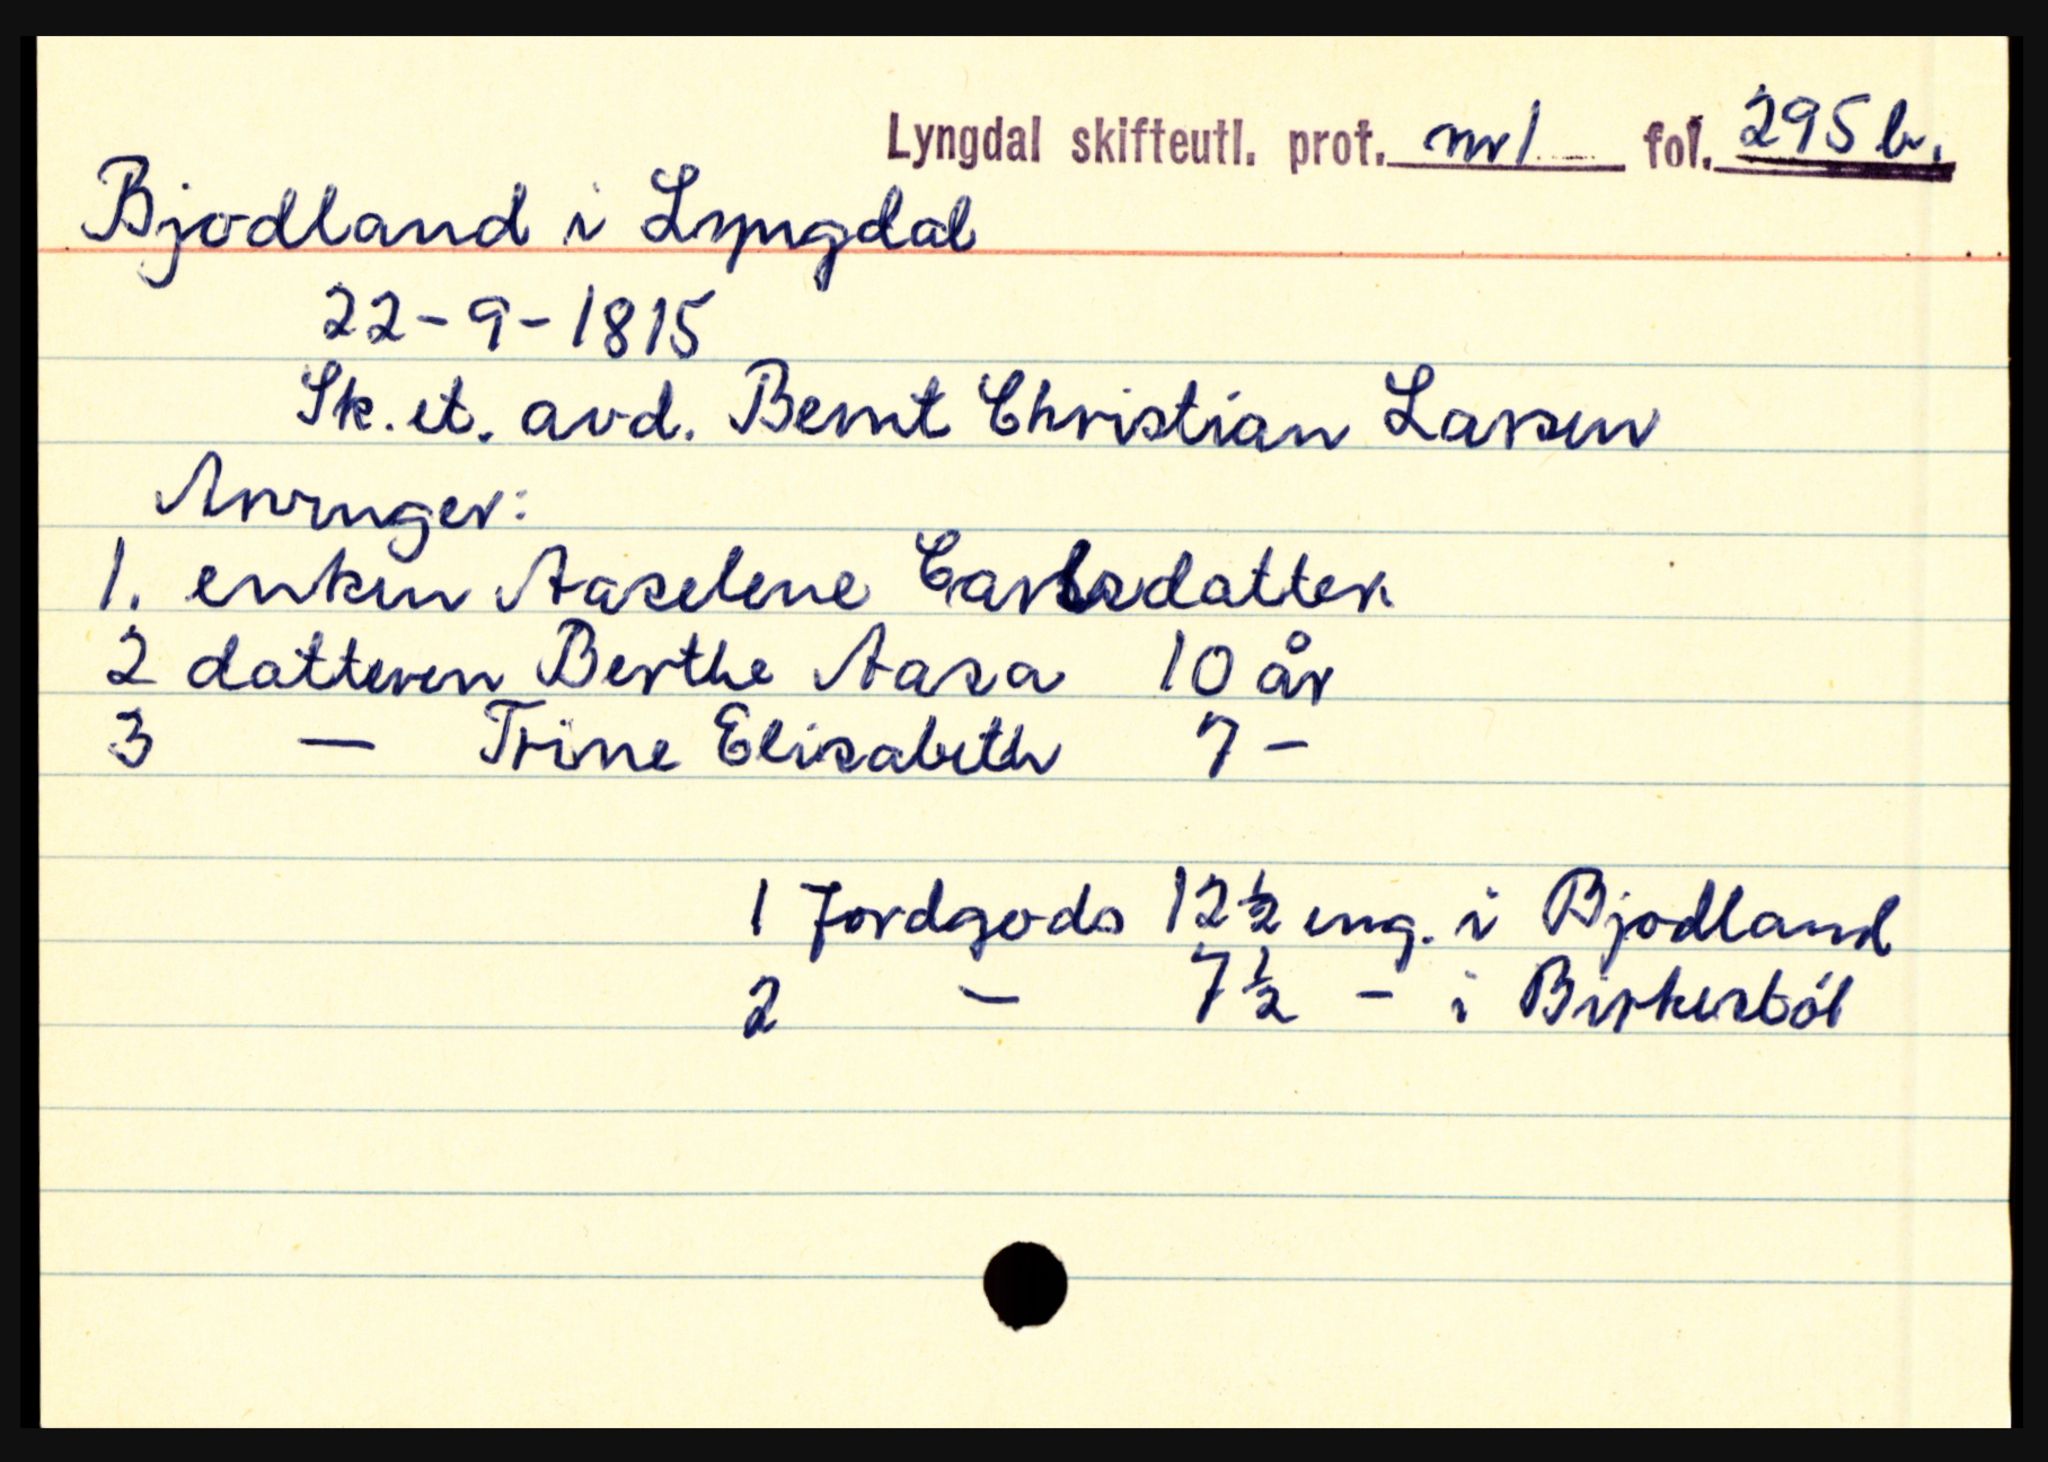 Lyngdal skifteutl. prot. nr 1 fol. 295 b.
Bjodland i Lyngdal
22-9-1815
Sk. et. avd. Bernt Christian Larsen
Arvinger:
1. enken Aaselene Carlsdatter.
2 datteren Berthe Aasa 10 år
3 — Trine Elisabeth 7 –
1 Jordgods 12½ eng. i Bjodland
2 – 7½ – i Birkesböl